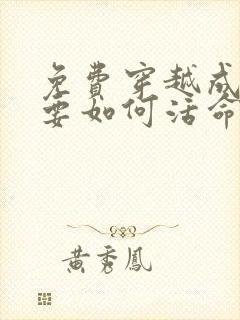 免費穿越成
要如何活命
黃秀鳳